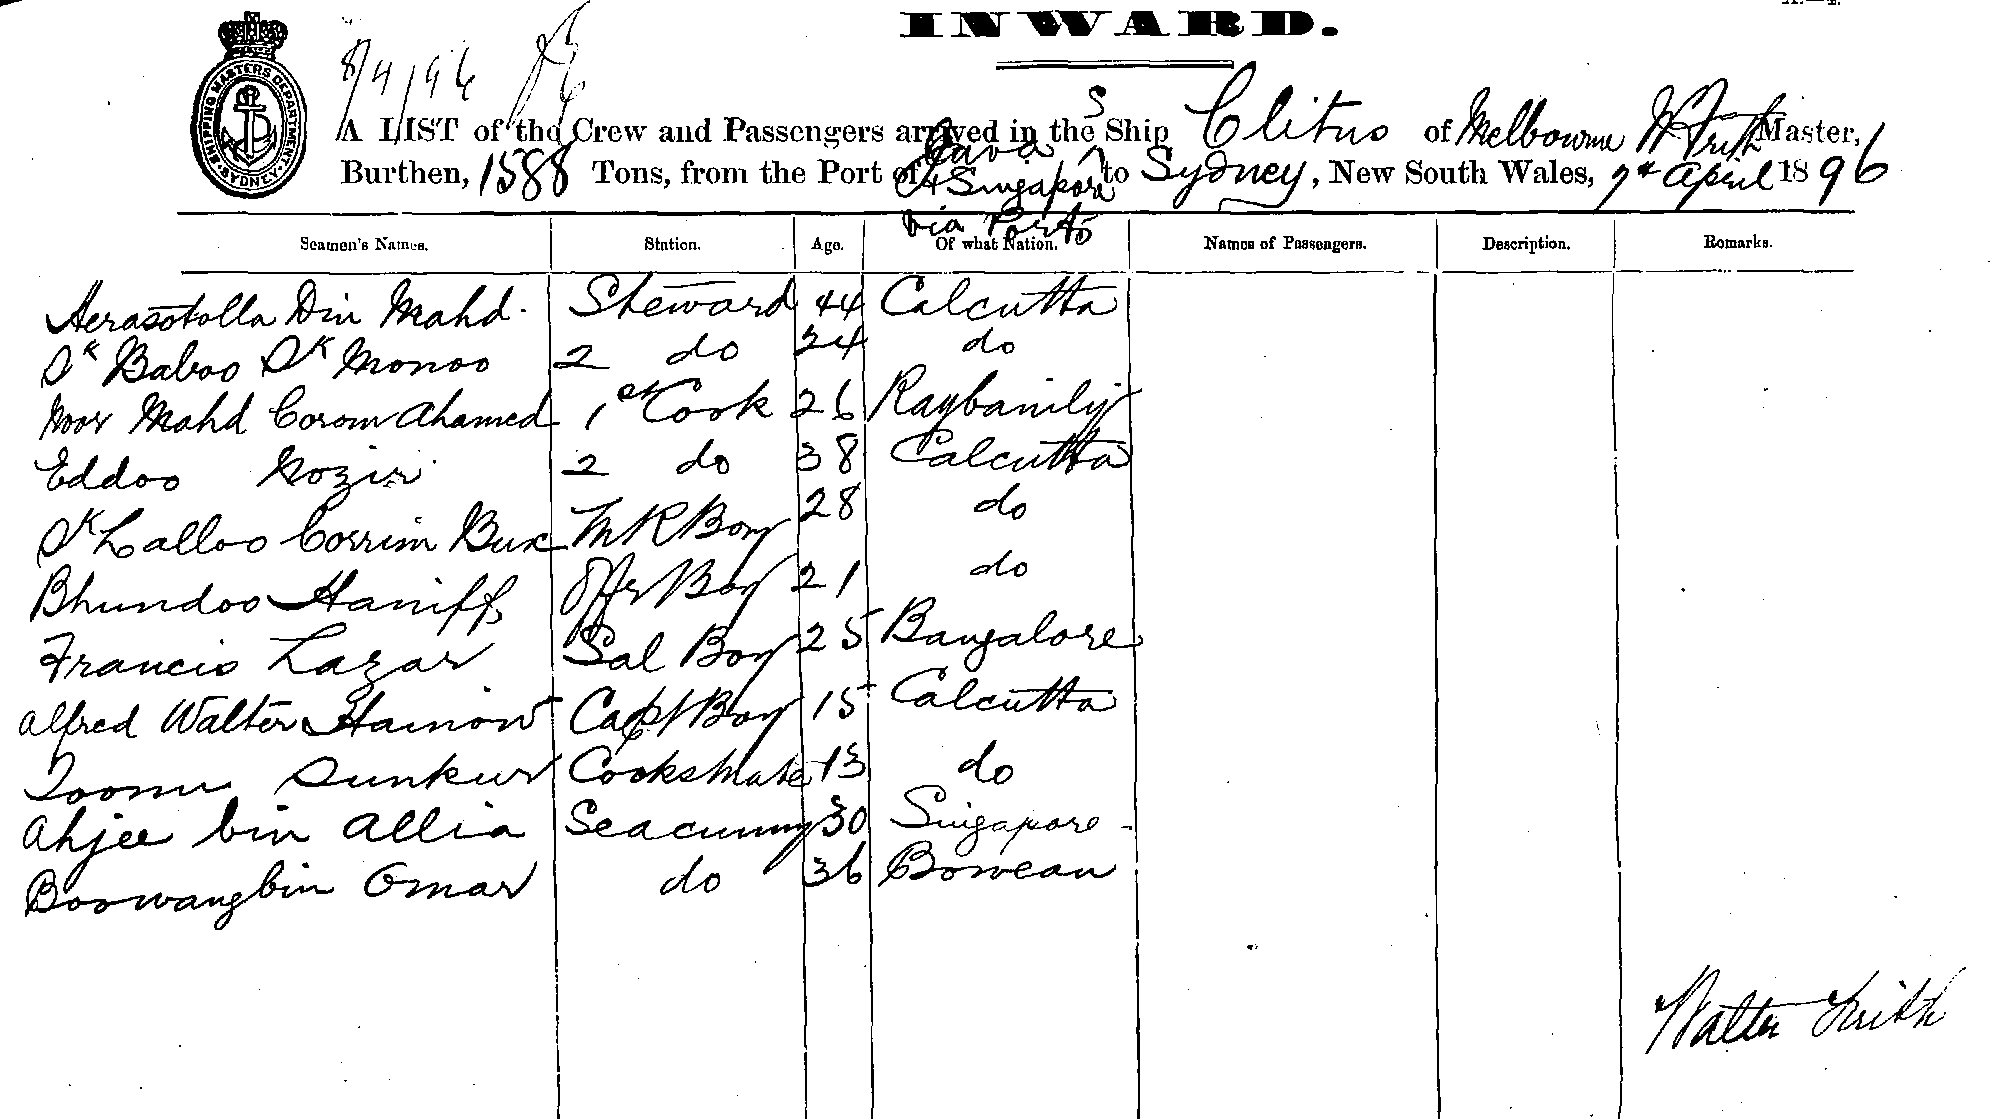 INWARD.
SHIPPING MASTERS DEPARTMENT SYDNEY
8/4/96
A LIST of the Crew and Passengers arrived in the SShip Clitus of Melbourne W Frith Master,
Burthen, 1588 Tons, from the Port of Java & Singapore via Ports to Sydney, New South Wales, 7th April 1896
Seamen's Names. Station. Age. Of what Nation. Names of Passengers. Description. Remarks.
Aerasotolla Din Mahd. Steward 44 Calcutta
Sk Baboo Sk Monoo 2 do 24 do
Noor Mahd Corom Ahamed 1st Cook 26 Raybarilij
Eddoo Nozir 2 do 38 Calcutta
Sk Lalloo Corrim Bux M R Boy 28 do
Bhundoo Haniff Offr Boy 21 do
Francis Lazar Sal Boy 25 Bangalore
Alfred Walter Capt Boy 15 Calcutta
Toomu Sunkur Cooksmate 13 do
Ahjee bin Allia Seacunny 30 Singapore
Boowang bin Omar do 36 Bowean
Walter Frith